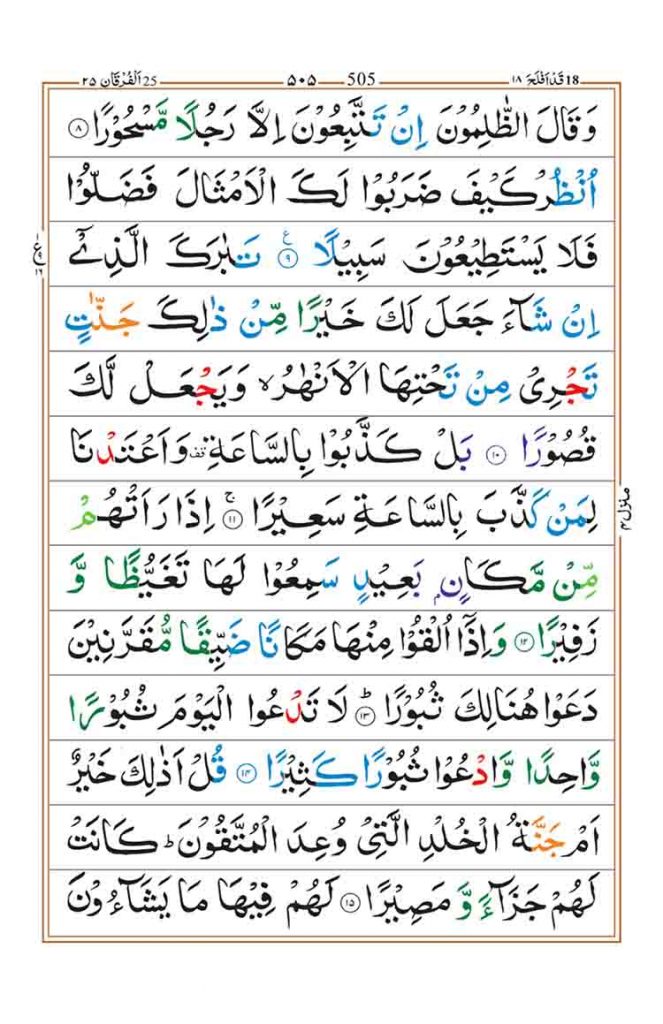 قَدْ اَفْلَحَ ١٨ 18 505 ٥٠٥ اَلْفُرْقَان ٢٥ 25
وَ قَالَ الظّٰلِمُوْنَ اِنْ تَتَّبِعُوْنَ اِلَّا رَجُلًا مَّسْحُوْرًا ۝٨
اُنْظُرْ كَيْفَ ضَرَبُوْا لَكَ الْاَمْثَالَ فَضَلُّوْا
فَلَا يَسْتَطِيْعُوْنَ سَبِيْلًا ۝٩ ع تَبٰرَكَ الَّذِيْۤ
اِنْ شَآءَ جَعَلَ لَكَ خَيْرًا مِّنْ ذٰلِكَ جَنّٰتٍ
تَجْرِيْ مِنْ تَحْتِهَا الْاَنْهٰرُ ۙ وَيَجْعَلْ لَّكَ
قُصُوْرًا ۝١٠ بَلْ كَذَّبُوْا بِالسَّاعَةِ قف وَاَعْتَدْنَا
لِمَنْ كَذَّبَ بِالسَّاعَةِ سَعِيْرًا ۝١١ ج اِذَا رَاَتْهُمْ
مِّنْ مَّكَانٍۭ بَعِيْدٍ سَمِعُوْا لَهَا تَغَيُّظًا وَّ
زَفِيْرًا ۝١٢ وَاِذَاۤ اُلْقُوْا مِنْهَا مَكَانًا ضَيِّقًا مُّقَرَّنِيْنَ
دَعَوْا هُنَالِكَ ثُبُوْرًا ۝١٣ ط لَا تَدْعُوا الْيَوْمَ ثُبُوْرًا
وَّاحِدًا وَّادْعُوْا ثُبُوْرًا كَثِيْرًا ۝١٤ قُلْ اَذٰلِكَ خَيْرٌ
اَمْ جَنَّةُ الْخُلْدِ الَّتِيْ وُعِدَ الْمُتَّقُوْنَ ؕ كَانَتْ
لَهُمْ جَزَآءً وَّ مَصِيْرًا ۝١٥ لَهُمْ فِيْهَا مَا يَشَآءُوْنَ
ع
منزل ٤